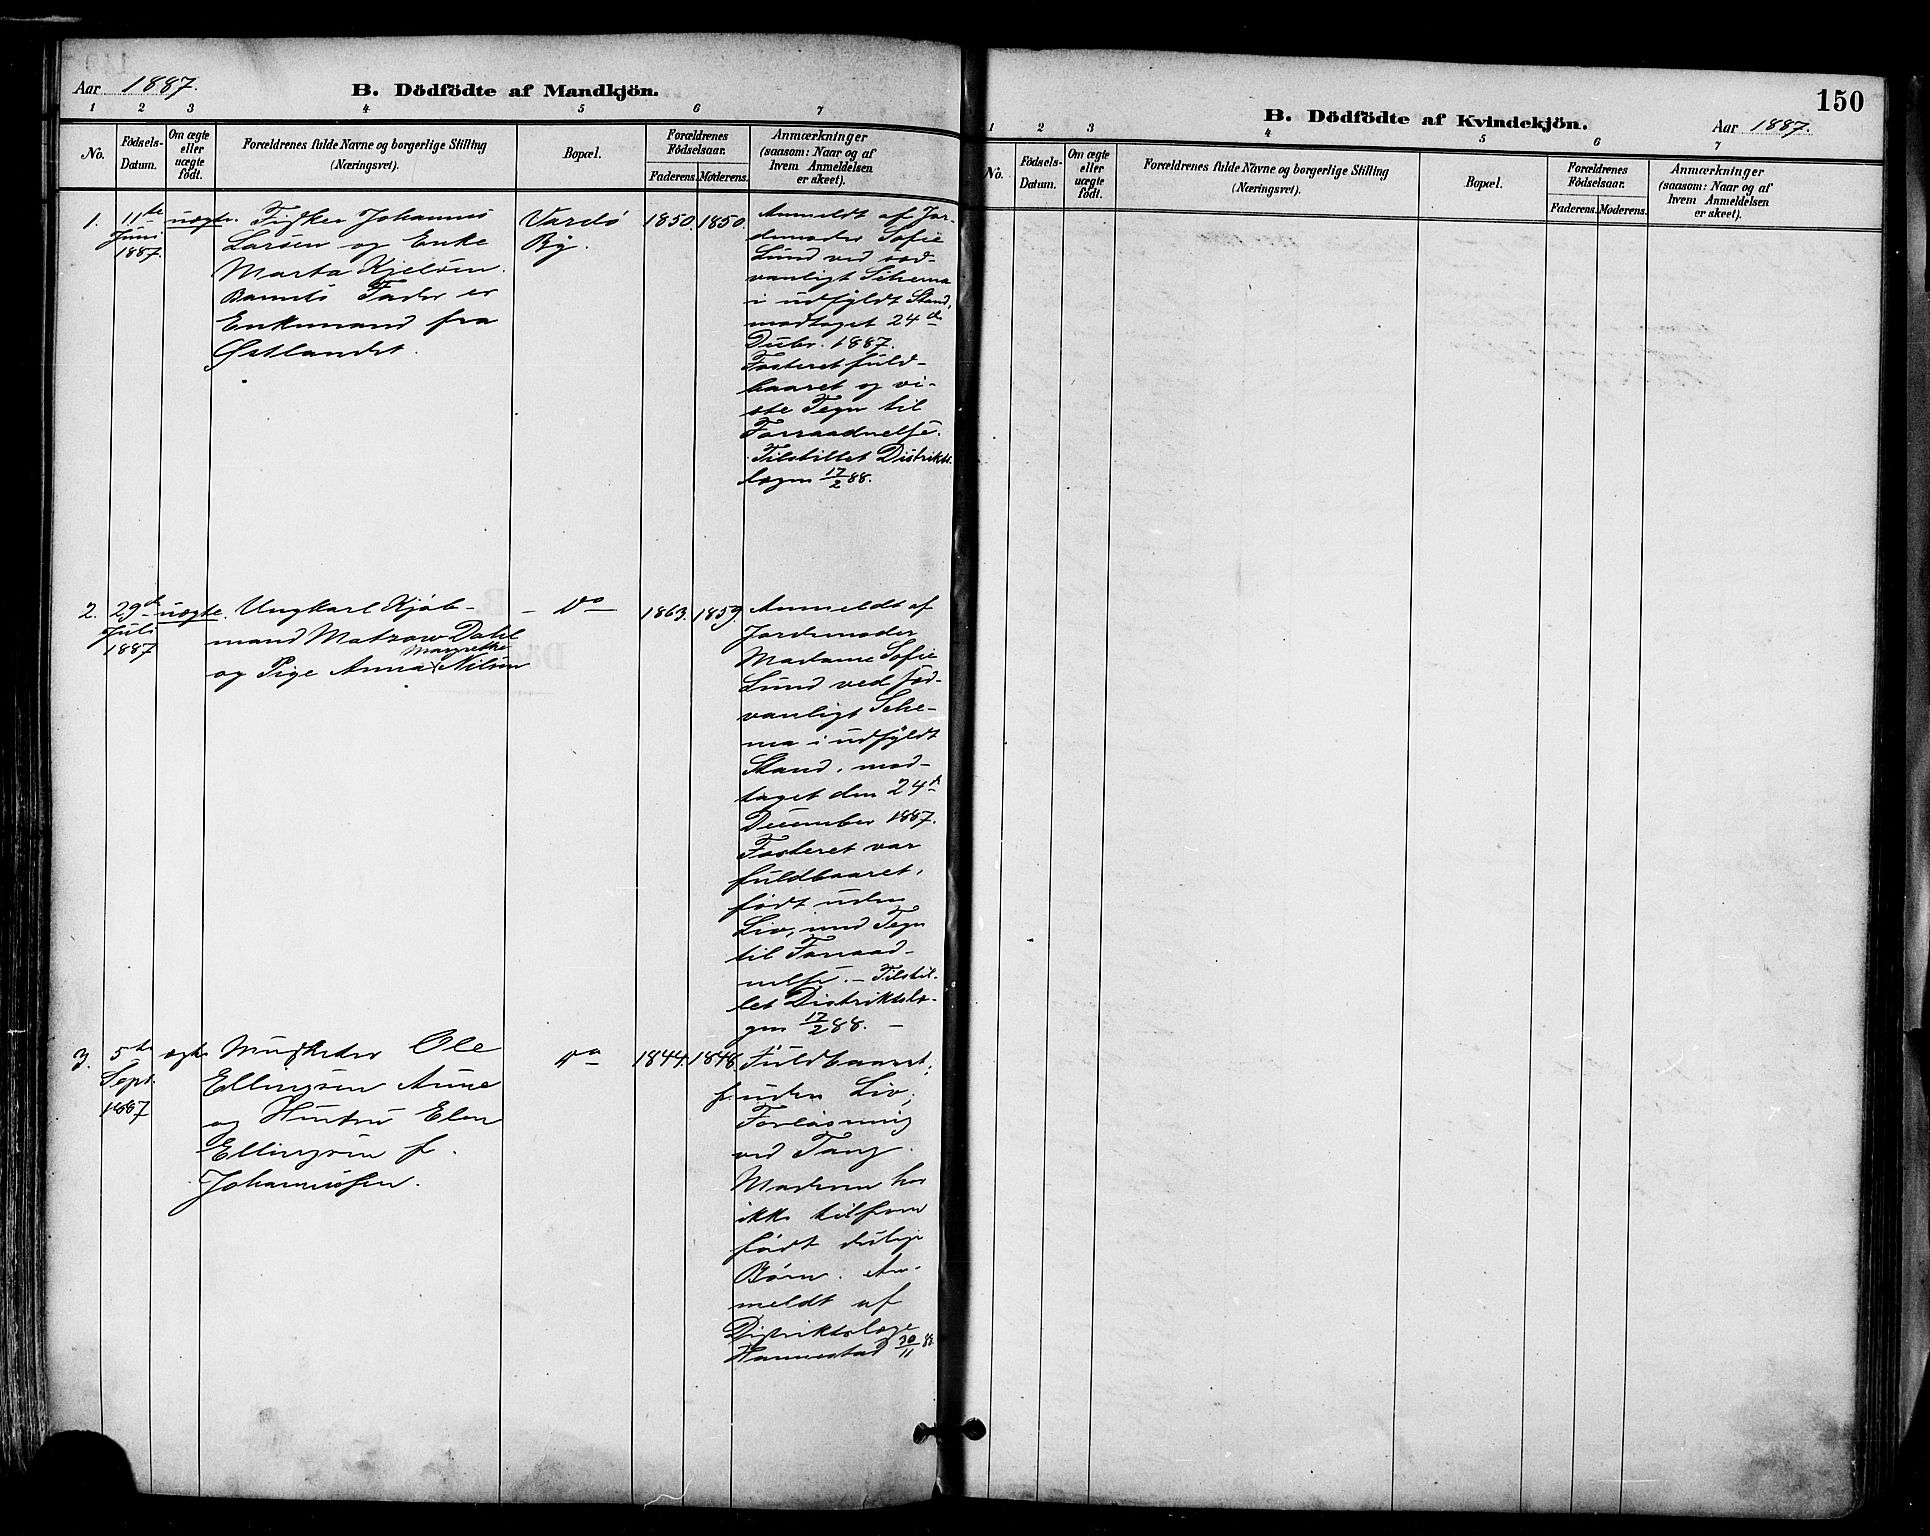 Aar 1887.
B. Dödfödte af Mandkjön.
1 2 3 4 5 6 7
No.
Födsels-
Datum.
Om ægte
eller
uægte
födt.
Forældrenes fulde Navne og borgerlige Stilling
(Næringsvei).
Bopæl.
Forældrenes
Födselsaar.
Faderens. Moderens.
Anmærkninger
(saasom: Naar og af
hvem Anmeldelsen
er skeet).
1.
11te
Juni
1887.
uægte.
Fisker Johannes
Larsen og Enke
Marta Kjelsen.
Barnets Fader er
Enkemand fra
Østlandet.
Vardö
By.
1850. 1850.
Anmeldt af Jor-
demoder Sofie
Lund ved sæd-
vanligt Schema
i udfyldt Stand,
modtaget 24de
Decbr. 1887.
Fosteret fuld-
baaret og vi-
ste Tegn til
Forraadnelse.
Tilstillet Distrikts-
lægen 17/2 88.
2.
29de
Juli
1887
uægte.
Ungkarl Kjøb-
mand Dahl
og Pige Anna Margrethe Nilsen
– Do
1863. 1859.
Anmeldt af
Jordemoder
Madame Sofie
Lund ved sæd-
vanligt Sche-
ma i udfyldt
Stand, mod-
taget den 24de
December 1887.
Fosteret var
fuldbaaret,
født uden
Liv, med Tegn
til Forraad-
nelse. – Tilstil-
let Distriktslæ-
gen 17/2 88. –
3.
5te
Sept.
1887
ægte
Ole
Ellingsen Aune
og Hustru Elen
Ellingsen f.
Johannessen.
Do
1844. 1848.
Fuldbaaret,
f. uden Liv;
Forløsning
ved Tang.
Moderen har
ikke tilforn
født
Børn. An-
meldt af
Distriktslæge
Hannestad 30/11 88
150
B. Dödfödte af Kvindekjön.
Aar 1887.
1 2 3 4 5 6 7
No.
Födsels-
Datum.
Om ægte
eller
uægte
födt.
Forældrenes fulde Navne og borgerlige Stilling
(Næringsvei).
Bopæl.
Forældrenes
Födselsaar.
Faderens. Moderens.
Anmærkninger
(saasom: Naar og af
hvem Anmeldelsen
er skeet).